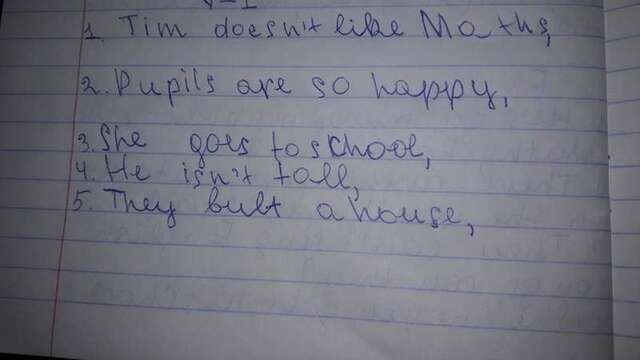 1. Tim doesn't like Maths,
2. Pupils are so happy,
3. She goes to school,
4. He isn't tall,
5. They bult a house,